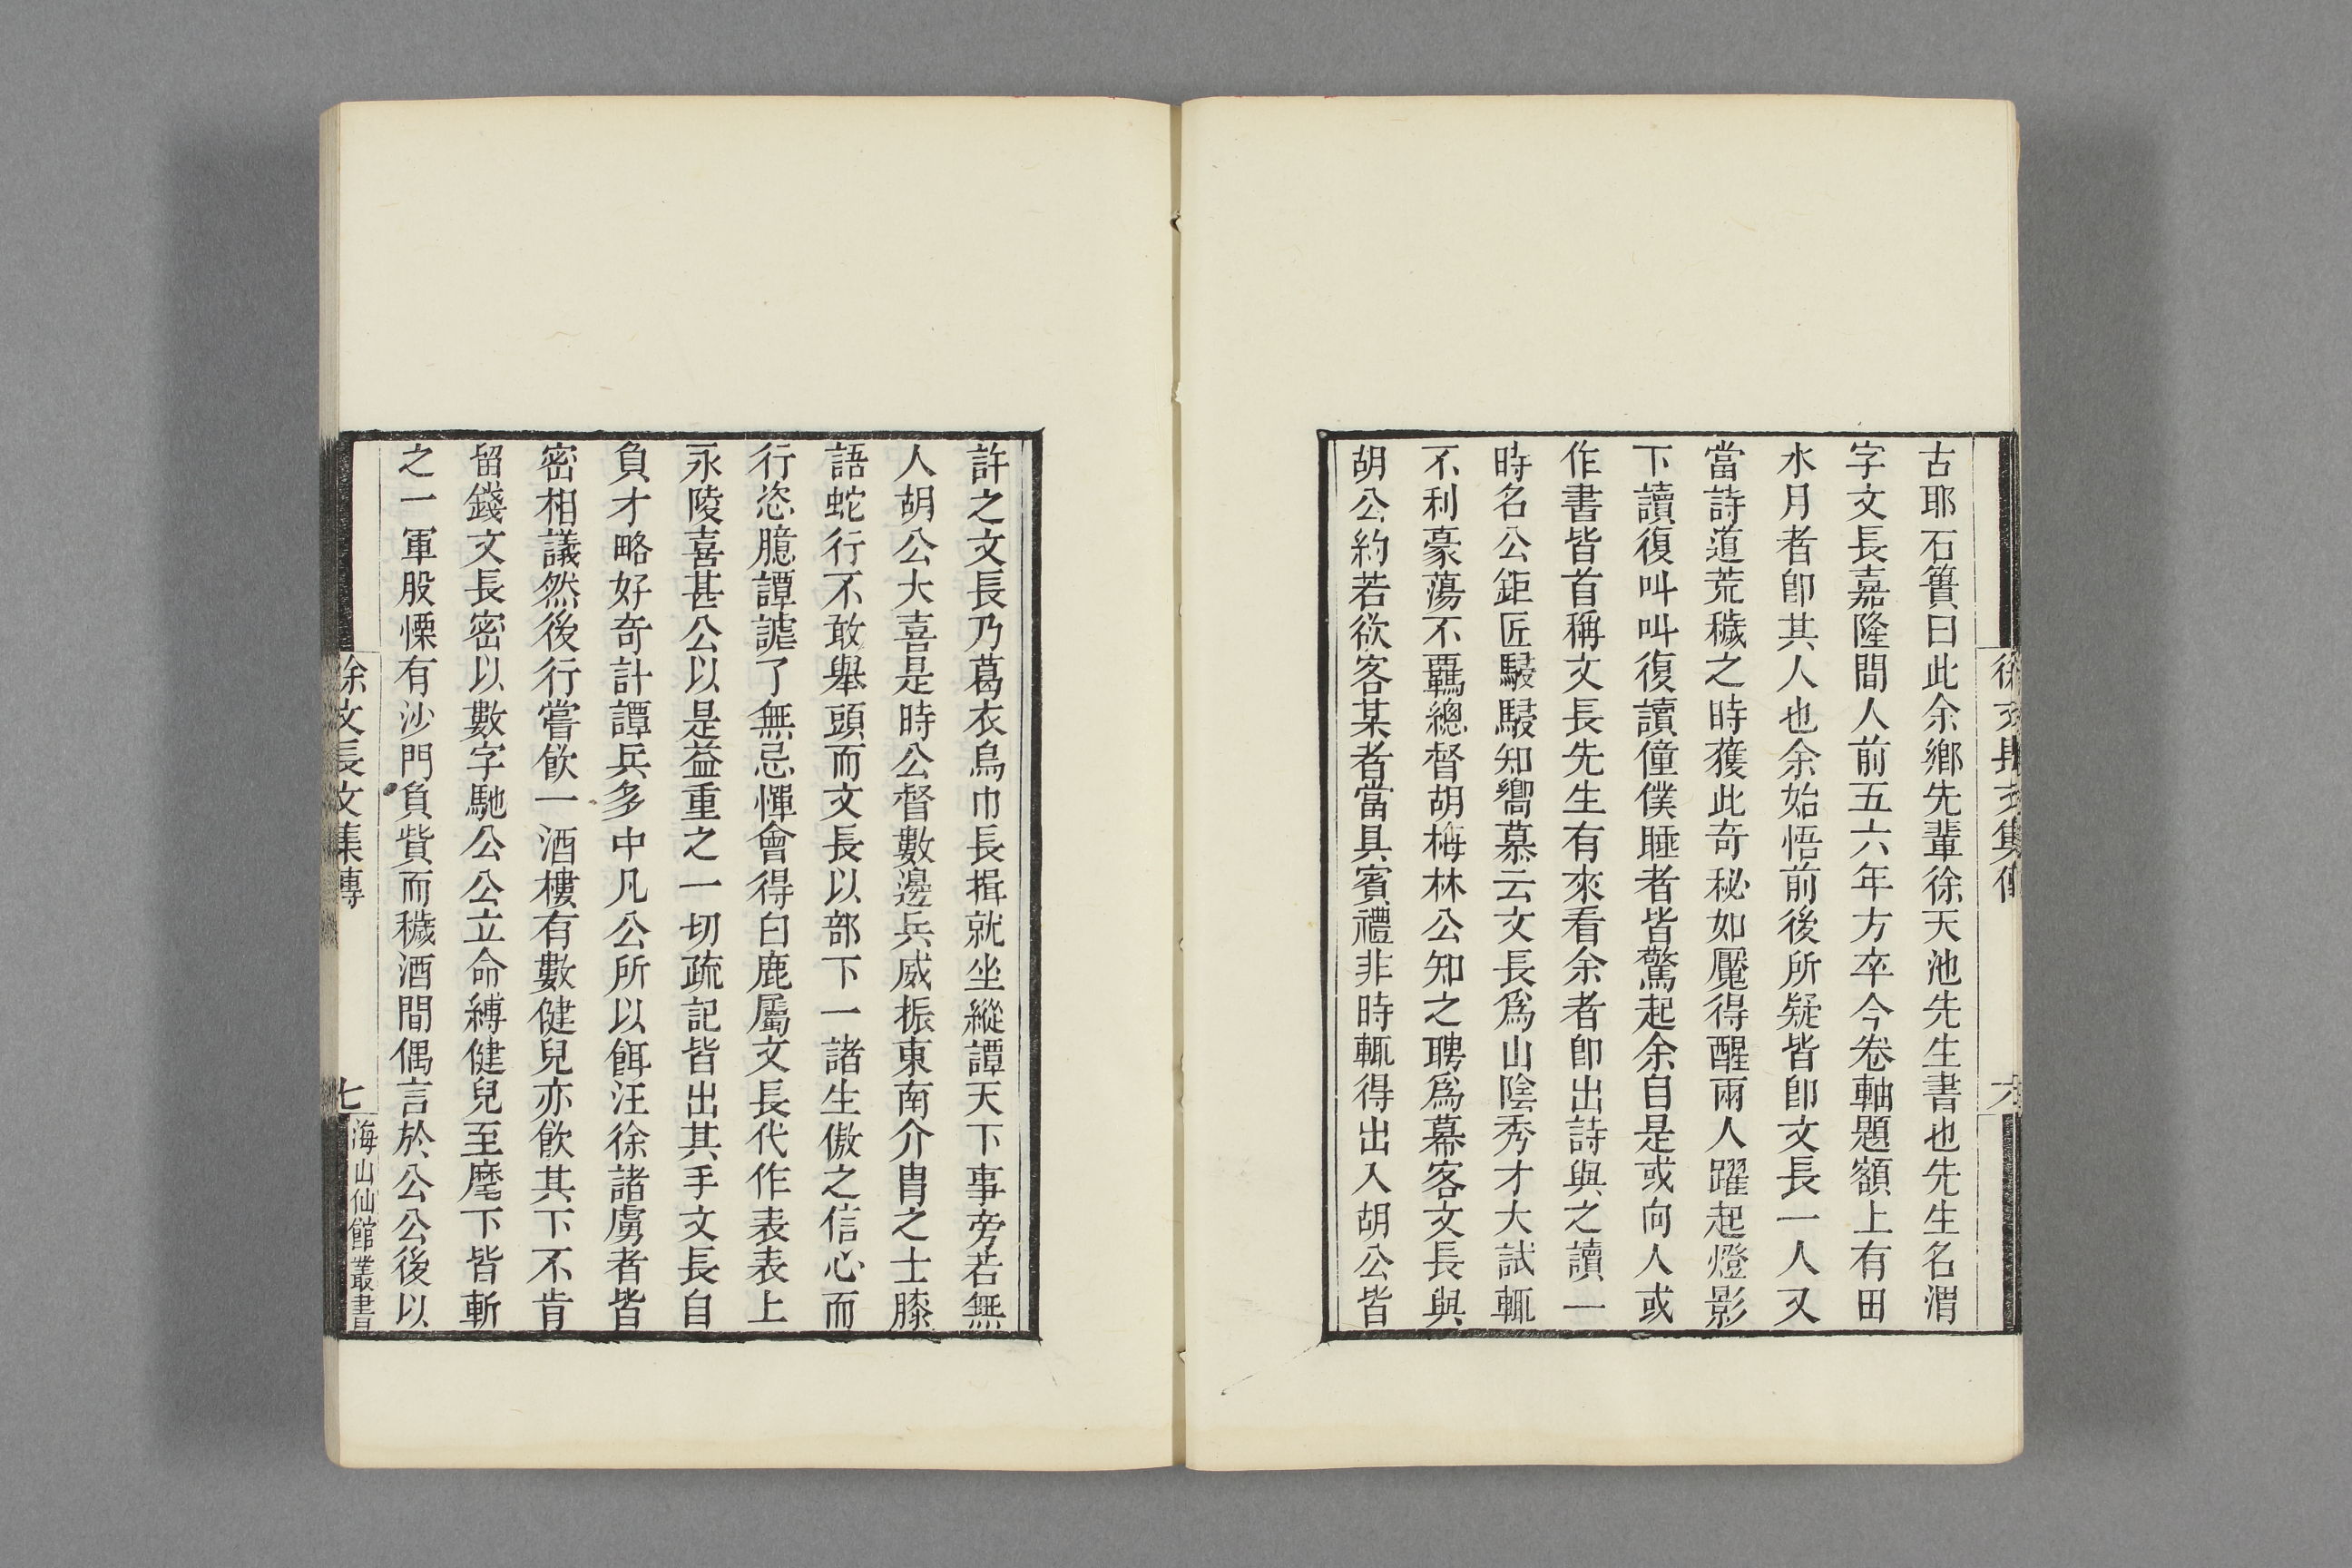 古耶石簣曰此余鄉先輩徐天池先生書也先生名渭
字文長嘉隆間人前五六年方卒今卷軸題額上有田
水月者卽其人也余始悟前後所疑皆卽文長一人又
當詩道荒穢之時獲此奇秘如魘得醒兩人躍起燈影
下讀復叫叫復讀僮僕睡者皆驚起余自是或向人或
作書皆首稱文長先生有來看余者卽出詩與之讀一
時名公鉅匠駸駸知嚮慕云文長爲山陰秀才大試輒
不利豪蕩不羈總督胡梅林公知之聘爲幕客文長與
胡公約若欲客某者當具賓禮非時輒得出入胡公皆
徐文長文集傳
六
許之文長乃葛衣烏巾長揖就坐縱譚天下事旁若無
人胡公大喜是時公督數邊兵威振東南介胄之士膝
語蛇行不敢舉頭而文長以部下一諸生傲之信心而
行恣臆譚謔了無忌憚會得白鹿屬文長代作表表上
永陵喜甚公以是益重之一切疏記皆出其手文長自
負才略好奇計譚兵多中凡公所以餌汪徐諸虜者皆
密相議然後行嘗飮一酒樓有數健兒亦飮其下不肯
留錢文長密以數字馳公公立命縛健兒至麾下皆斬
之一軍股慄有沙門負貲而穢酒間偶言於公公後以
徐文長文集傳
七
海山仙館叢書